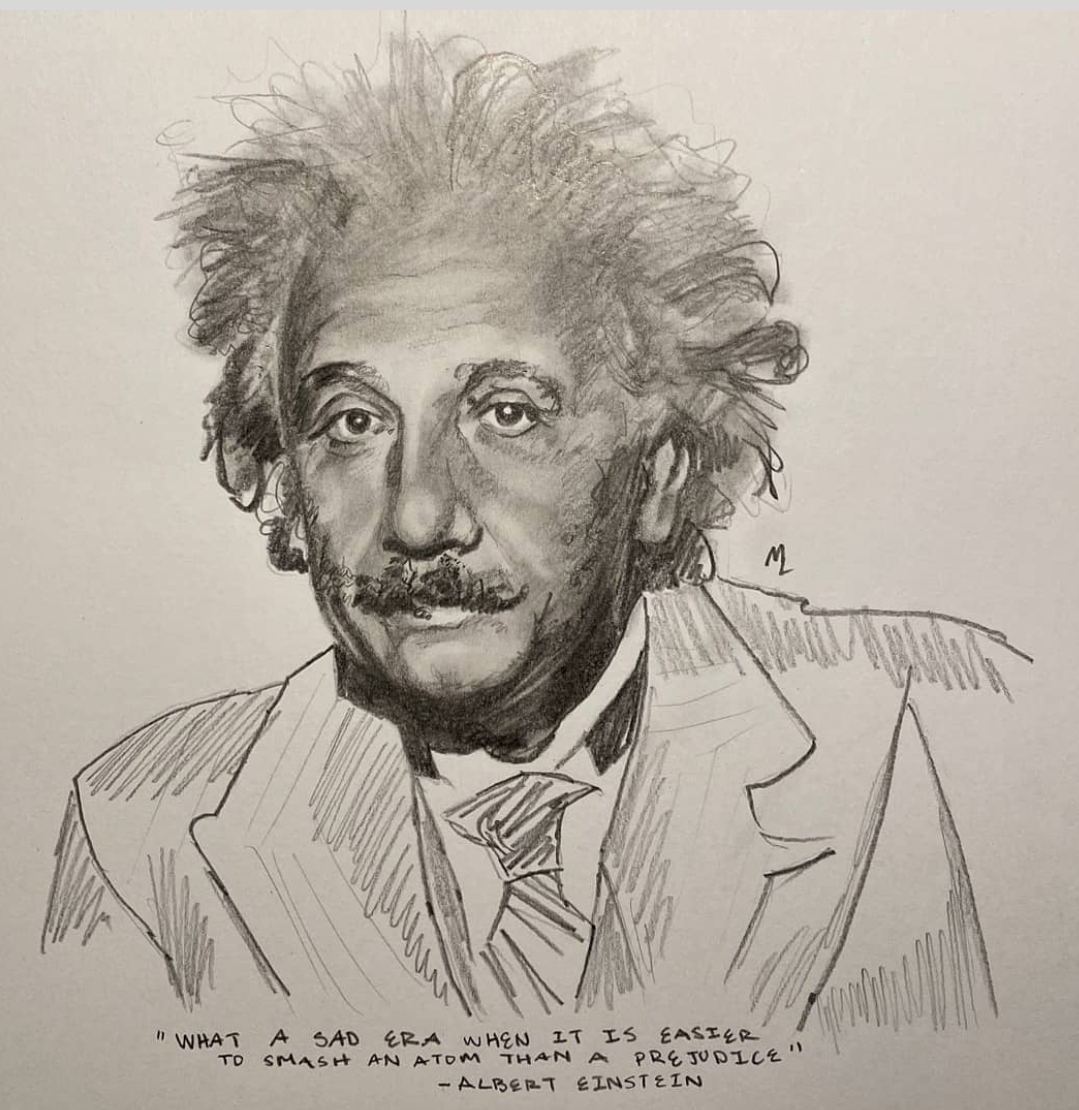 ML
"WHAT A SAD ERA WHEN IT IS EASIER
TO SMASH AN ATOM THAN A PREJUDICE"
-ALBERT EINSTEIN